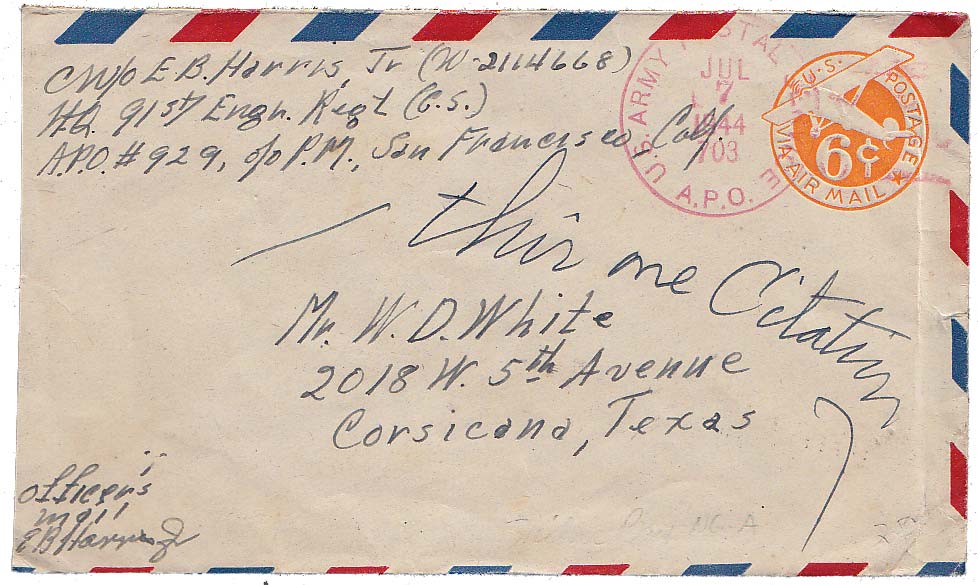 CWO E. B. Harris, Jr (W-2114668)
HQ. 91st Engn. Regt (G.S.)
A.P.O. #929, c/o P.M., San Francisco, Calif.
U.S. ARMY POSTAL
JUL
7
1944
703
A.P.O.
U.S. POSTAGE
6¢
VIA AIR MAIL
this one Citation
Mr. W. D. White
2018 W. 5th Avenue
Corsicana, Texas
Officer's
mail
EB Harris Jr